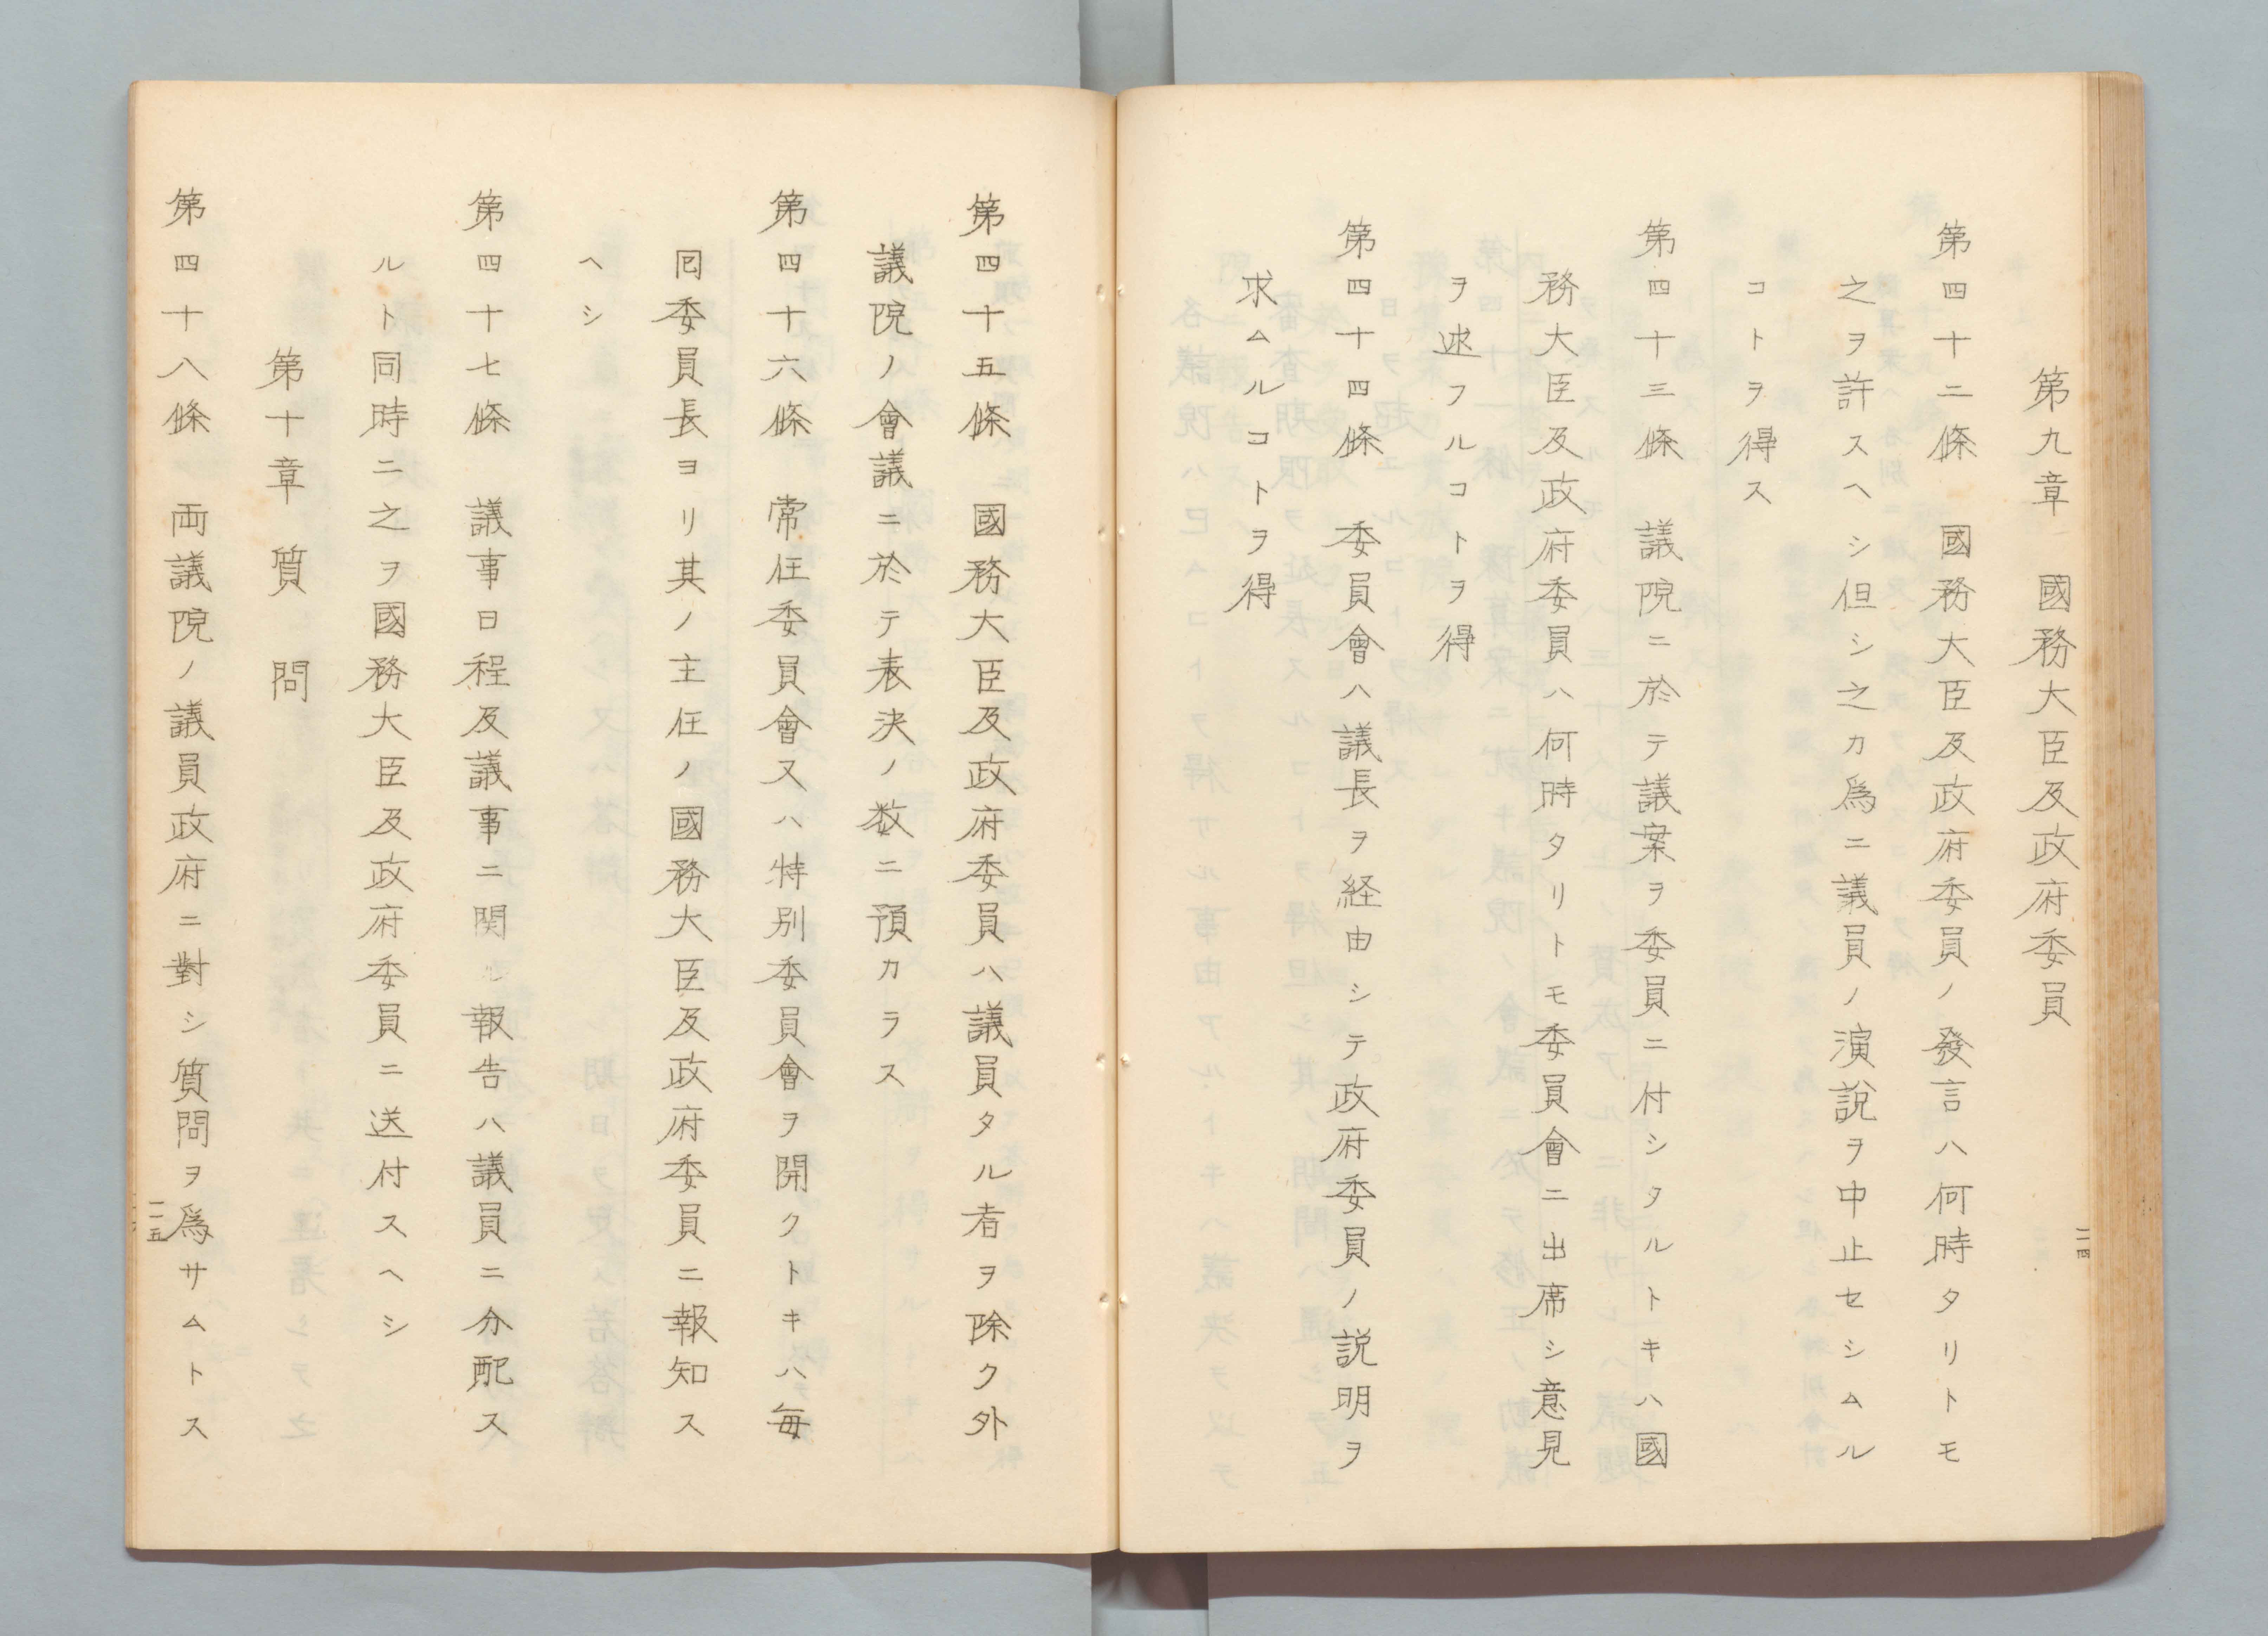 第九章　國務大臣及政府委員
第四十二條　國務大臣及政府委員ノ發言ハ何時タリトモ
之ヲ許スヘシ但シ之カ爲ニ議員ノ演說ヲ中止セシムル
コトヲ得ス
第四十三條　議院ニ於テ議案ヲ委員ニ付シタルトキハ國
務大臣及政府委員ハ何時タリトモ委員會ニ出席シ意見
ヲ逑フルコトヲ得
第四十四條　委員會ハ議長ヲ経由シテ政府委員ノ説明ヲ
求ムルコトヲ得
二四
第四十五條　國務大臣及政府委員ハ議員タル者ヲ除ク外
議院ノ會議ニ於テ表決ノ数ニ預カラス
第四十六條　常任委員會又ハ特別委員會ヲ開クトキハ每
囘委員長ヨリ其ノ主任ノ國務大臣及政府委員ニ報知ス
ヘシ
第四十七條　議事日程及議事ニ関ル報告ハ議員ニ分配ス
ルト同時ニ之ヲ國務大臣及政府委員ニ送付スヘシ
第十章　質問
第四十八條　両議院ノ議員政府ニ對シ質問ヲ爲サムトス
二五